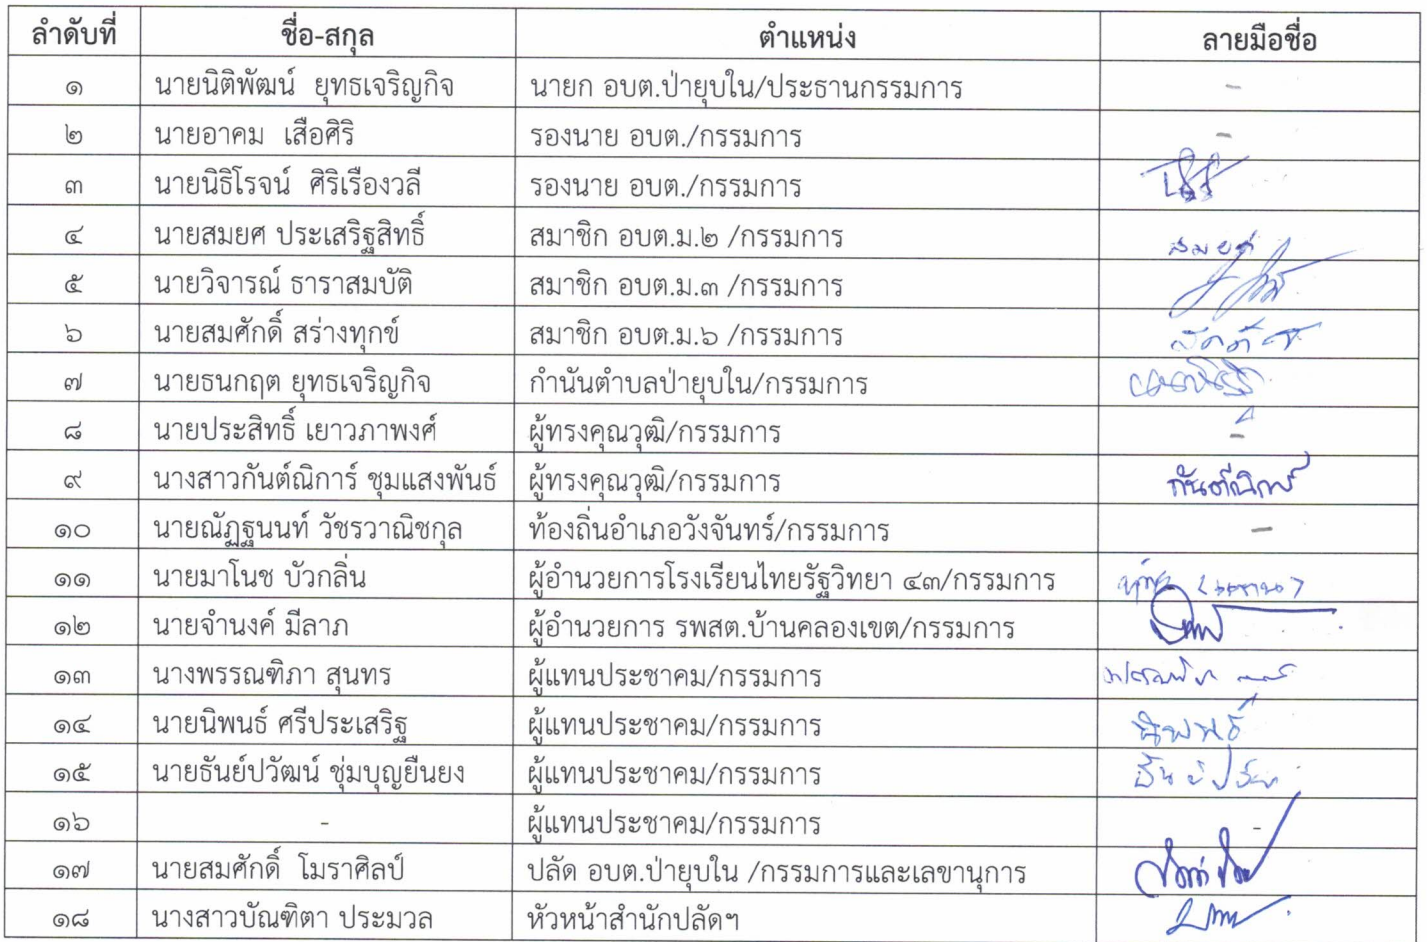 ลำดับที่ ชื่อ-สกุล ตำแหน่ง ลายมือชื่อ
๑ นายนิติพัฒน์ ยุทธเจริญกิจ นายก อบต.ป่ายุบใน/ประธานกรรมการ -
๒ นายอาคม เสือศิริ รองนาย อบต./กรรมการ -
๓ นายนิธิโรจน์ ศิริเรืองวลี รองนาย อบต./กรรมการ
๔ นายสมยศ ประเสริฐสิทธิ์ สมาชิก อบต.ม.๒ /กรรมการ สมยศ
๕ นายวิจารณ์ ธาราสมบัติ สมาชิก อบต.ม.๓ /กรรมการ
๖ นายสมศักดิ์ สร่างทุกข์ สมาชิก อบต.ม.๖ /กรรมการ
๗ นายธนกฤต ยุทธเจริญกิจ กำนันตำบลป่ายุบใน/กรรมการ
๘ นายประสิทธิ์ เยาวภาพงศ์ ผู้ทรงคุณวุฒิ/กรรมการ -
๙ นางสาวกันต์ณิการ์ ชุมแสงพันธ์ ผู้ทรงคุณวุฒิ/กรรมการ กันต์ณิการ์
๑๐ นายณัฏฐนนท์ วัชรวาณิชกุล ท้องถิ่นอำเภอวังจันทร์/กรรมการ -
๑๑ นายมาโนช บัวกลิ่น ผู้อำนวยการโรงเรียนไทยรัฐวิทยา ๔๓/กรรมการ
๑๒ นายจำนงค์ มีลาภ ผู้อำนวยการ รพสต.บ้านคลองเขต/กรรมการ
๑๓ นางพรรณฑิภา สุนทร ผู้แทนประชาคม/กรรมการ
๑๔ นายนิพนธ์ ศรีประเสริฐ ผู้แทนประชาคม/กรรมการ นิพนธ์
๑๕ นายธันย์ปวัฒน์ ชุ่มบุญยืนยง ผู้แทนประชาคม/กรรมการ
๑๖ - ผู้แทนประชาคม/กรรมการ -
๑๗ นายสมศักดิ์ โมราศิลป์ ปลัด อบต.ป่ายุบใน /กรรมการและเลขานุการ
๑๘ นางสาวบัณฑิตา ประมวล หัวหน้าสำนักปลัดฯ